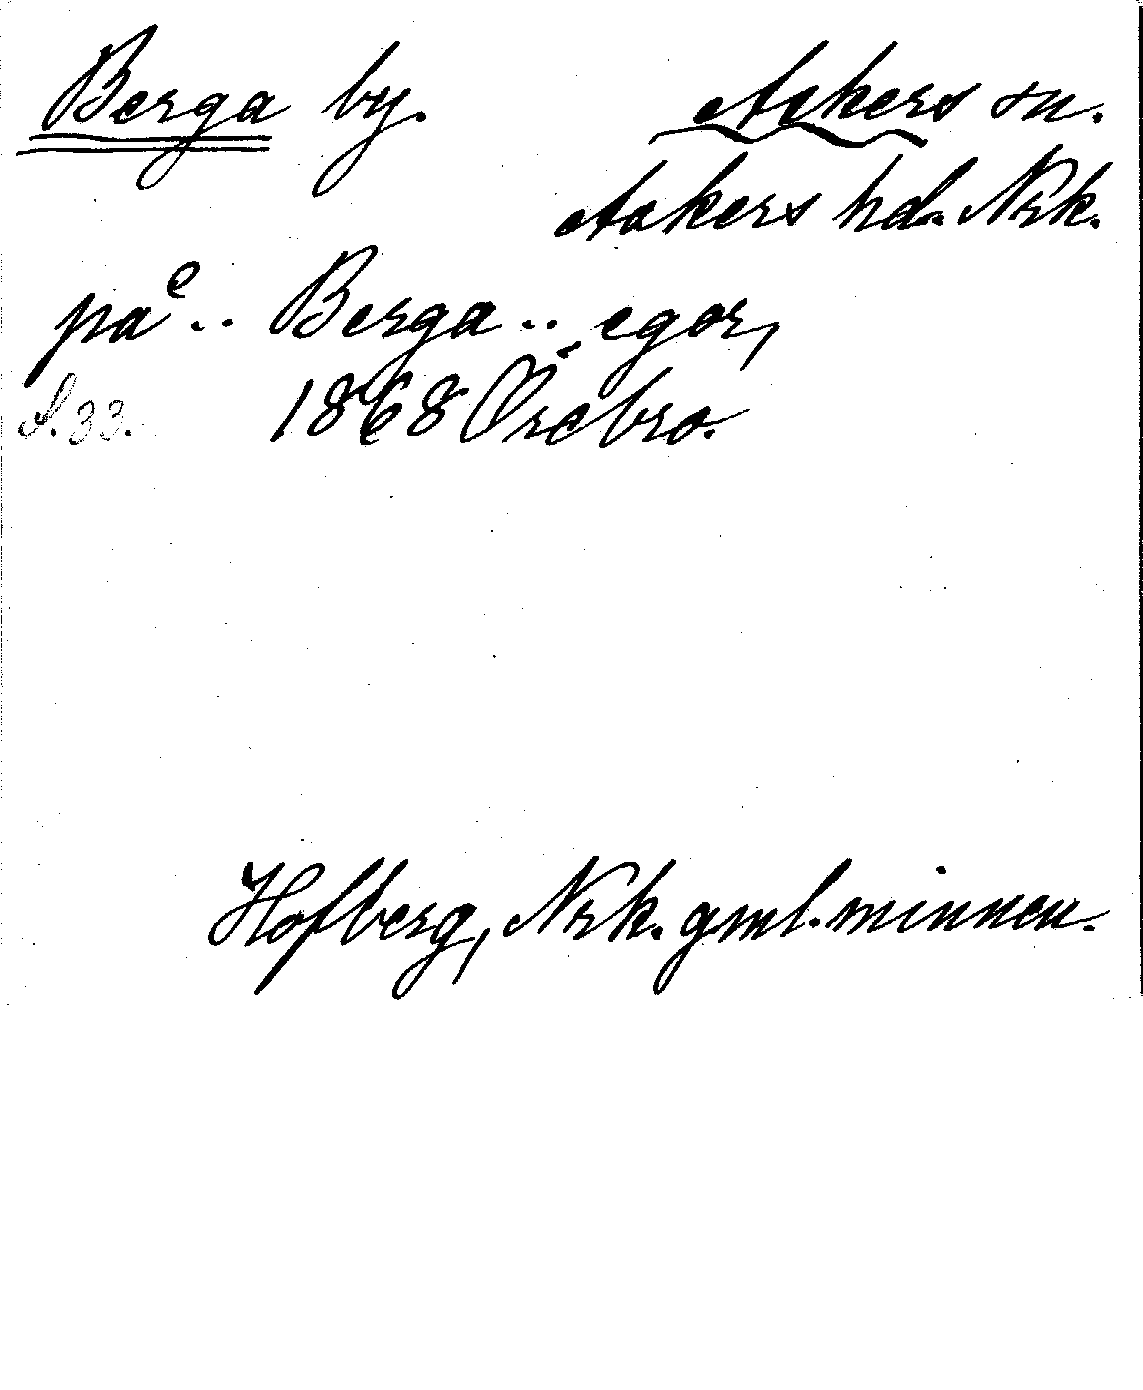 Berga by. Askers sn.
Askers hd. Nrk.
på .. Berga .. egor,
S. 33. 1868 Örebro.
Hofberg, Nrk. gml. minnen.